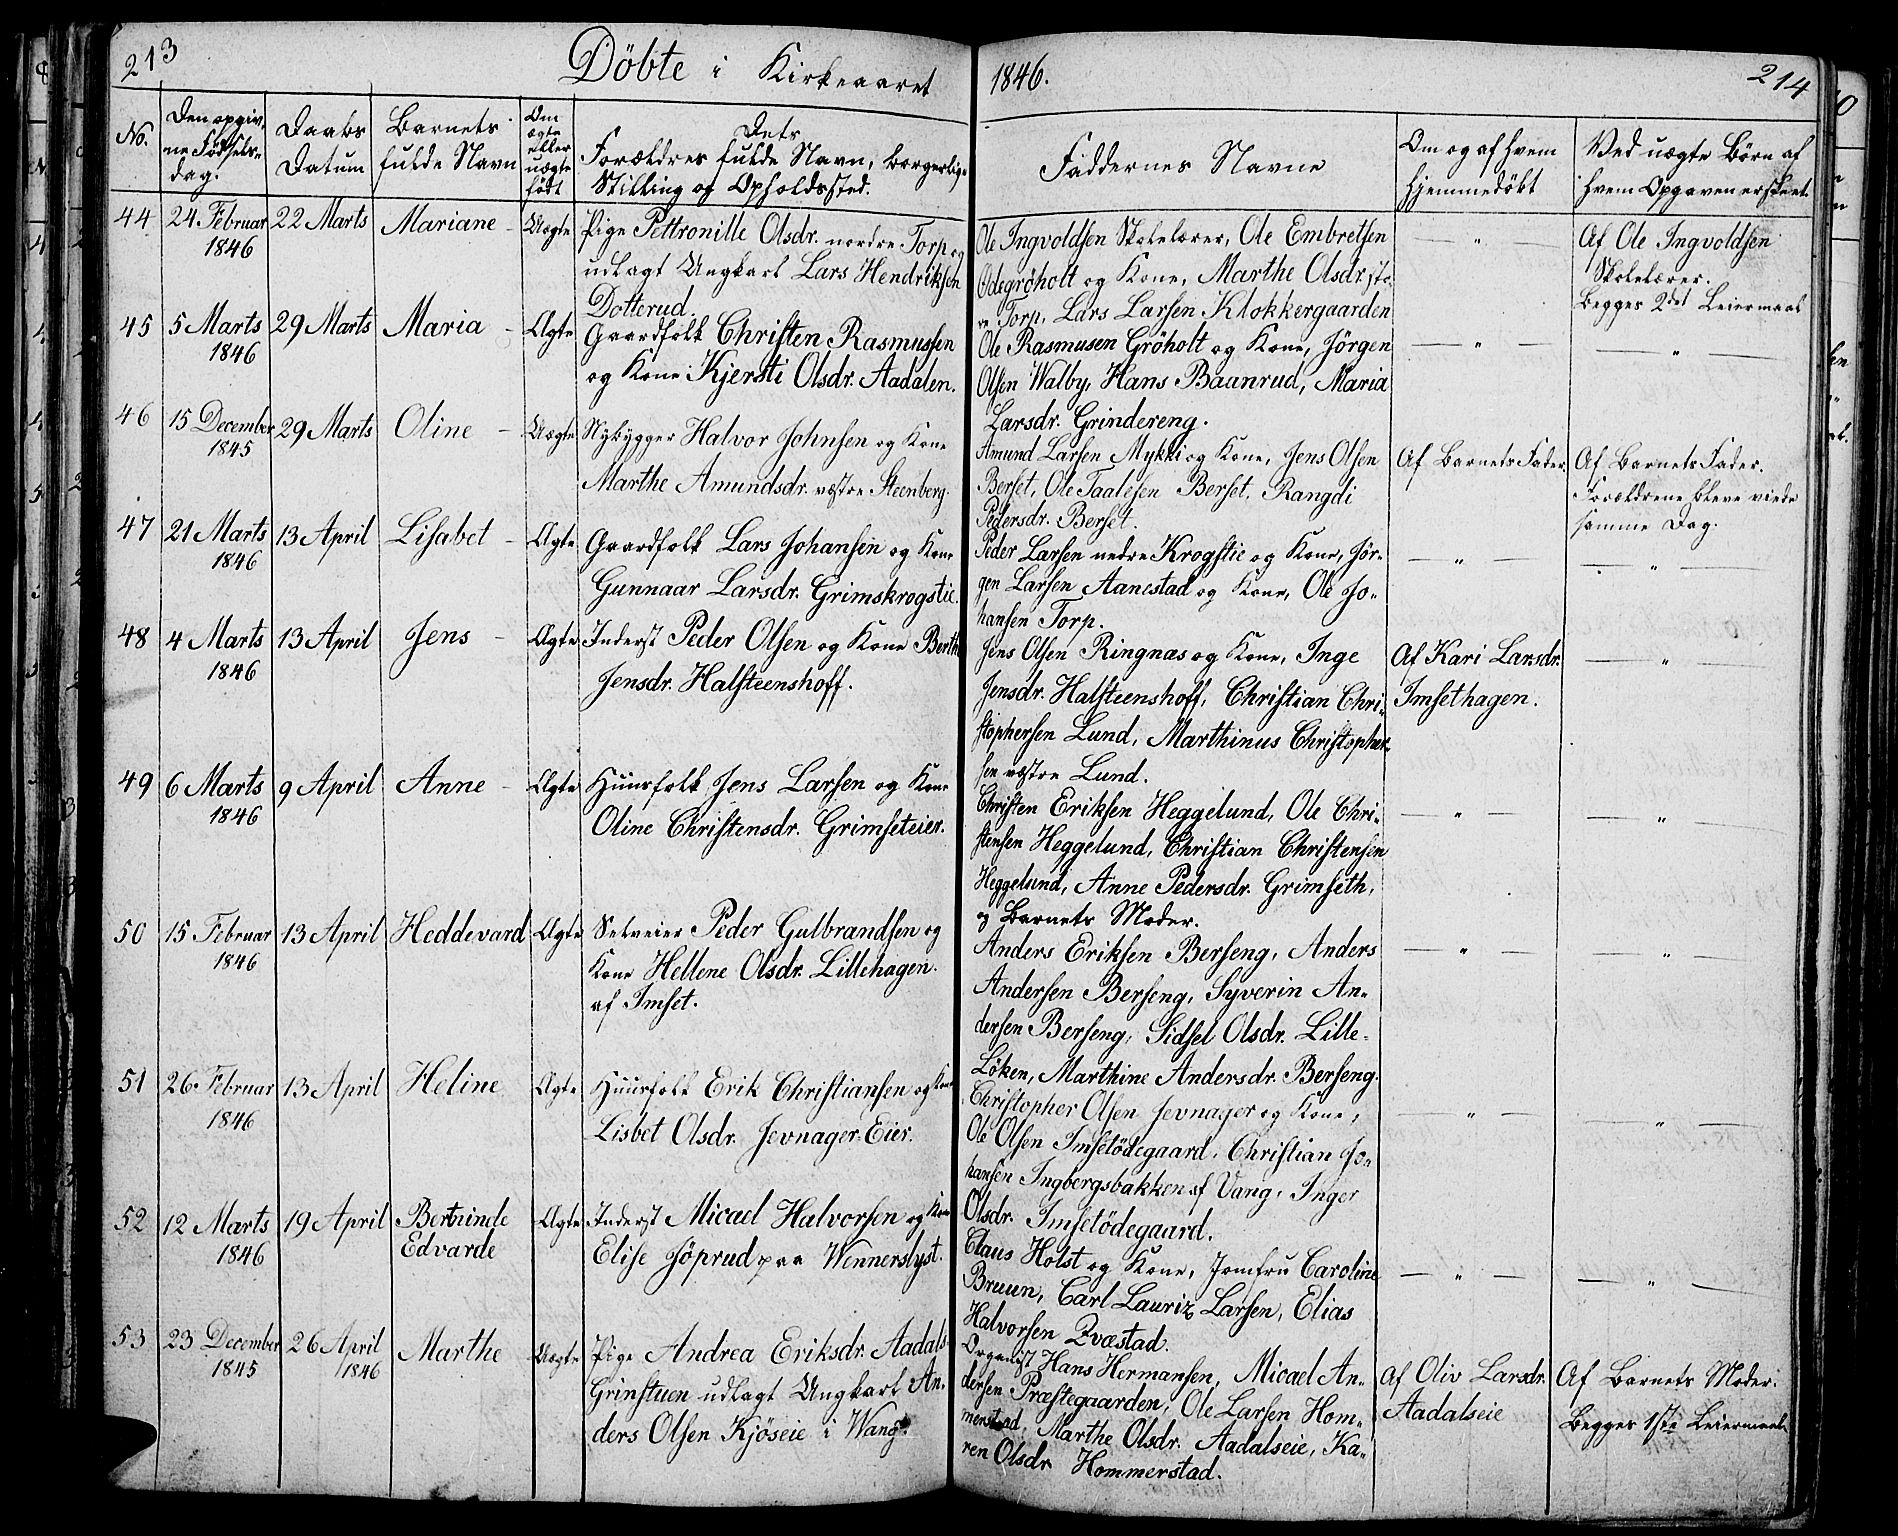 213
Döbte i Kirkeaaret
1846.
214
No.
Den opgiv-
ne Födsels-
dag.
Daabs
Datum
Barnets
fulde Navn
Om
ægte
eller
uægte
födt
Dets
Forældres fulde Navn, borgerlige
Stilling og Opholdssted.
Faddernes Navne
Om og af hvem
hjemmedöbt
Ved uægte Börn af
hvem Opgaven er skeet.
44
24 Februar
1846
22 Marts
Mariane -
Uægte
Pige Pettronille Olsdr. nordre Torp og
udlagt Ungkarl Lars Hendriksen
Dotterud.
Ole Ingvoldsen Skolelærer, Ole Embretsen
Ödegröholt og Kone, Marthe Olsdr. sto-
re Torp, Lars Larsen Klokkergaarden
— " —
Af Ole Ingvoldsen
Skolelærer.
Begges 2det Leiermaal
45
5 Marts
1846
29 Marts
Maria -
Ægte
Gaardfolk Christen Rasmussen
og Kone Kjersti Olsdr. Aadalen.
Ole Rasmusen Gröholt og Kone, Jörgen
Olsen Walby, Hans Baanrud, Maria
Larsdr. Grindereng.
— " —
— " —
46
15 December
1845
29 Marts
Oline -
Uægte
Nybygger Halvor Johnsen og Kone
Marthe Amundsdr. vestre Steenberg.
Amund Larsen Mykki og Kone, Jens Olsen
Berset, Ole Taalesen Berset, Rangdi
Pedersdr. Berset.
Af Barnets Fader.
Af Barnets Fader.
Forældrene bleve viede
samme Dag.
47
21 Marts
1846
13 April
Lisabet -
Ægte
Gaardfolk Lars Johansen og Kone
Gunnaar Larsdr. Grimskrogstie.
Peder Larsen nedre Krogstie og Kone, Jör-
gen Larsen Aanestad og Kone, Ole Jo-
hansen Torp.
— " —
— " —
48
4 Marts
1846
13 April
Jens -
Ægte
Inderst Peder Olsen og Kone Berthe
Jensdr. Halsteenshoff.
Jens Olsen Ringnæs og Kone, Inge
Jensdr. Halsteenshoff, Christian Chri-
stophersen Lund, Marthinus Christopher-
sen vestre Lund.
Af Kari Larsdr.
Imsethagen.
— " —
49
6 Marts
1846
9 April
Anne -
Ægte
Huusfolk Jens Larsen og Kone
Oline Christensdr. Grimseteier.
Christen Eriksen Heggelund, Ole Chri-
stensen Heggelund, Christian Christensen
Heggelund, Anne Pedersdr. Grimseth,
og Barnets Moder.
— " —
— " —
50
15 Februar
1846
13 April
Heddevard
Ægte
Selveier Peder Gulbrandsen og
Kone Hellene Olsdr. Lillehagen.
af Imset.
Anders Eriksen Berseng, Anders
Andersen Berseng, Syverin An-
dersen Berseng, Sidsel Olsdr. Lille-
Löken, Marthine Andersdr. Berseng.
— " —
— " —
51
26. Februar
1846
13 April
Heline
Ægte
Huusfolk Erik Christiansen og Kone
Lisbet Olsdr. Jevnager. Eier.
Christopher Olsen Jevnager og Kone,
Ole Olsen Imsetödegaard, Christian Jo-
hansen Ingbergsbakken af Vang, Inger
Olsdr. Imsetödegaard.
— " —
— " —
52
12 Marts
1846
19 April
Bertrinde
Edvarde
Ægte
Inderst Micael Halvorsen og Kone
Elise Jöprud paa Wennerslyst.
Claus Holst og Kone, Jomfru Caroline
Bruun, Carl Lauriz Larsen, Elias
Halvorsen Qvæstad.
— " —
— " —
53
23 December
1845
26 April
1846
Marthe
Uægte
Pige Andrea Eriksdr. Aadals-
Grinstuen udlagt Ungkarl An-
ders Olsen Kjöseie i Wang.
Organist Hans Hermansen, Micael An-
dersen Præstegaarden, Ole Larsen Hom-
merstad, Marthe Olsdr. Aadalseie, Ka-
ren Olsdr Hommerstad.
Af Oliv Larsdr.
Aadalseie
Af Barnets Moder.
Begges 1ste Leiermaal.